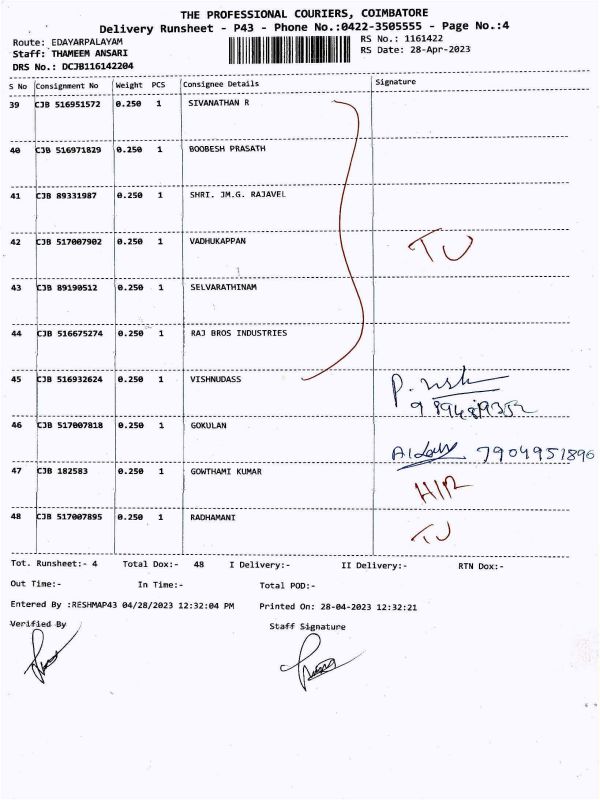 THE PROFESSIONAL COURIERS, COIMBATORE
Delivery Runsheet - P43 - Phone No.:0422-3505555 - Page No.:4
Route: EDAYARPALAYAM RS No.: 1161422
Staff: THAMEEM ANSARI RS Date: 28-Apr-2023
DRS No.: DCJB116142204
S No Consignment No Weight PCS Consignee Details Signature
39 CJB 516951572 0.250 1 SIVANATHAN R
40 CJB 516971829 0.250 1 BOOBESH PRASATH
41 CJB 89331987 0.250 1 SHRI. JM.G. RAJAVEL
42 CJB 517007902 0.250 1 VADHUKAPPAN TU
43 CJB 89190512 0.250 1 SELVARATHINAM
44 CJB 516675274 0.250 1 RAJ BROS INDUSTRIES
45 CJB 516932624 0.250 1 VISHNUDASS
46 CJB 517007818 0.250 1 GOKULAN
7904951896
47 CJB 182583 0.250 1 GOWTHAMI KUMAR
48 CJB 517007895 0.250 1 RADHAMANI TU
Tot. Runsheet:- 4 Total Dox:- 48 I Delivery:- II Delivery:- RTN Dox:-
Out Time:- In Time:- Total POD:-
Entered By :RESHMAP43 04/28/2023 12:32:04 PM Printed On: 28-04-2023 12:32:21
Verified By Staff Signature